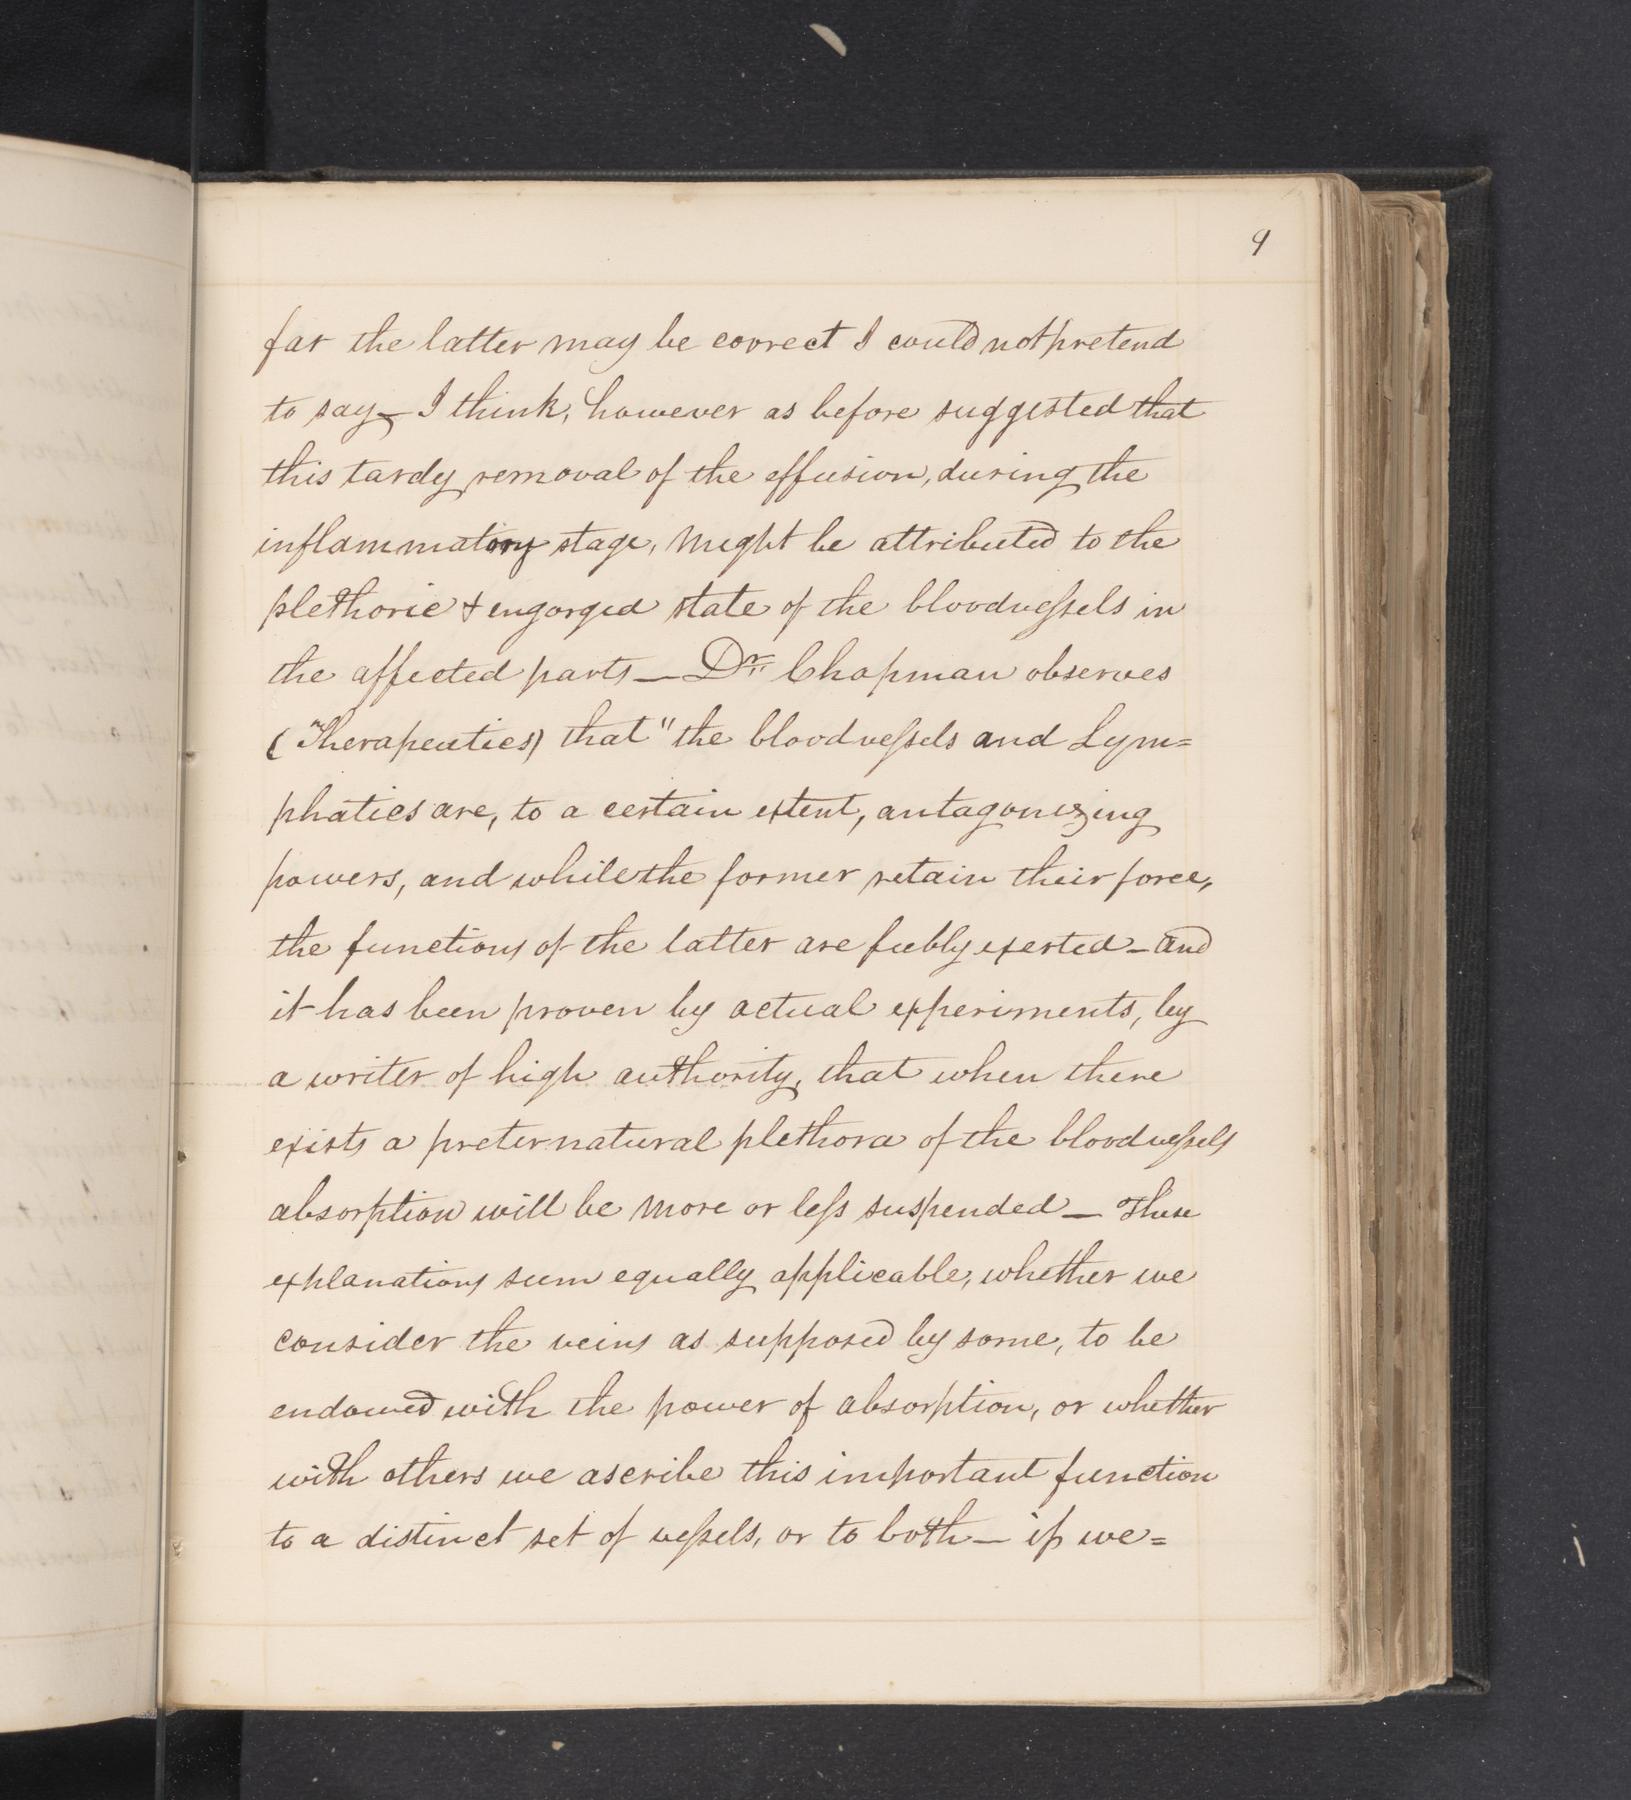 9
far the latter may be correct I could not pretend
to say — I think, however as before suggested that
this tardy removal of the effusion, during the
inflammatory stage, might be attributed to the
plethoric & engorged state of the bloodvessels in
the affected parts — Dr. Chapman observes
(Therapeutics) that "the bloodvessels and Lym=
phatics are, to a certain extent, antagonizing
powers, and while the former retain their force,
the functions of the latter are feebly exerted — and
it has been proven by actual experiments, by
a writer of high authority, that when there
exists a preternatural plethora of the bloodvessels
absorption will be more or less suspended — These
explanations seem equally applicable, whether we
consider the veins as supposed by some, to be
endowed with the power of absorption, or whether
with others we ascribe this important function
to a distinct set of vessels, or to both — if we=